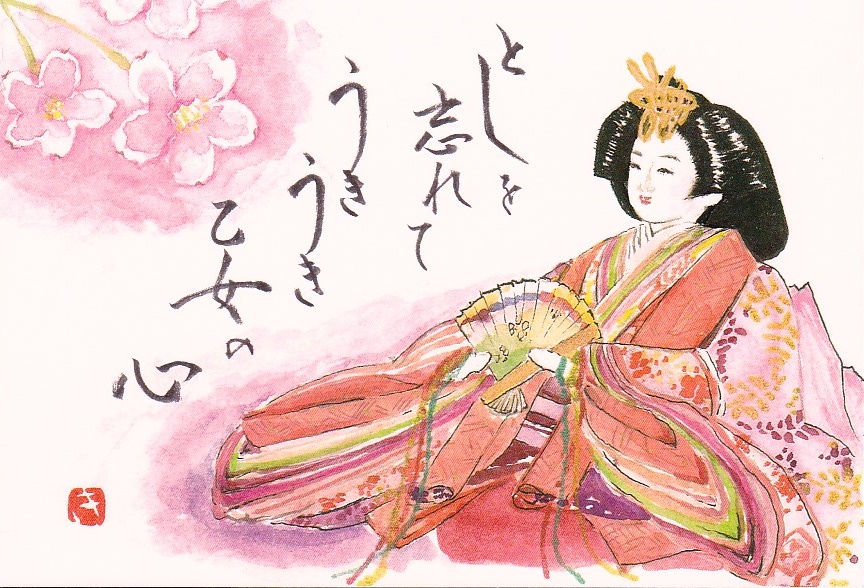 としを
忘れて
うき
うき
乙女の
心
き